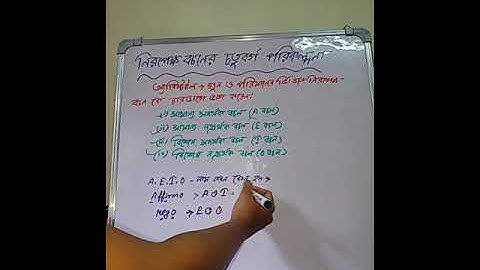 নিরপেক্ষ বচনের চতুবর্গ পরিকল্পনা
অ্যারিস্টটল → গুন ও পরিমানের ভিত্তিতে নিরপেক্ষ
বচন কে চারভাগে ভাগ করেন।
(i) সামান্য সদর্থক বচন (A বচন)
(ii) সামান্য নঞর্থক বচন (E বচন)
(iii) বিশেষ সদর্থক বচন (I বচন)
(iv) বিশেষ নঞর্থক বচন (O বচন)
A. E. I. O - নাম
Affirmo > A ও I
Nego → E ও O